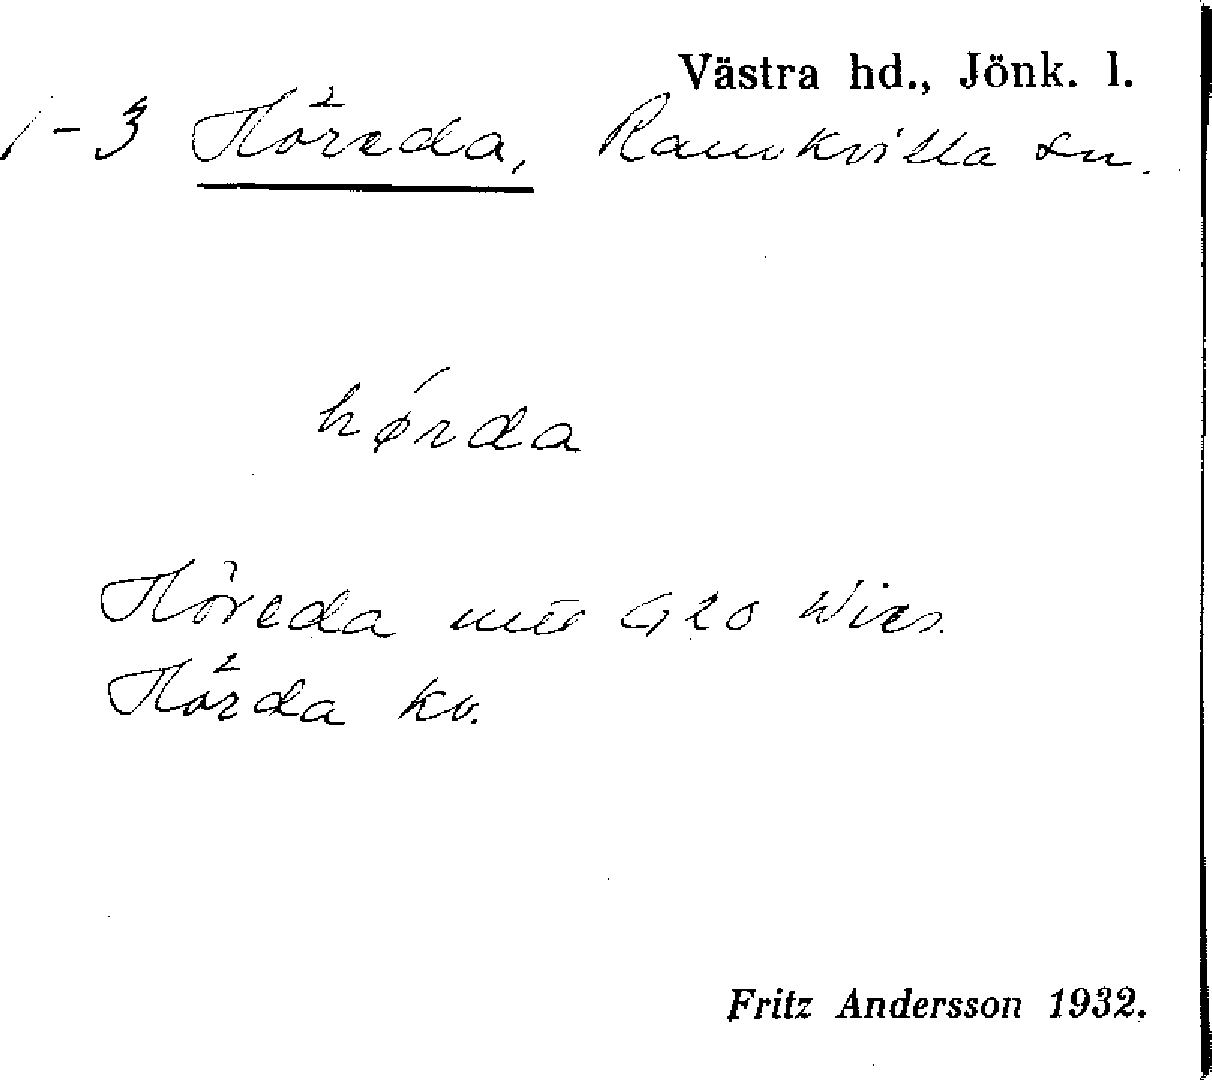 Västra hd., Jönk. l.
1-3 Höreda, Ramkvilla sn.
hǿrda
Höreda
Hörda kv.
Fritz Andersson 1932.